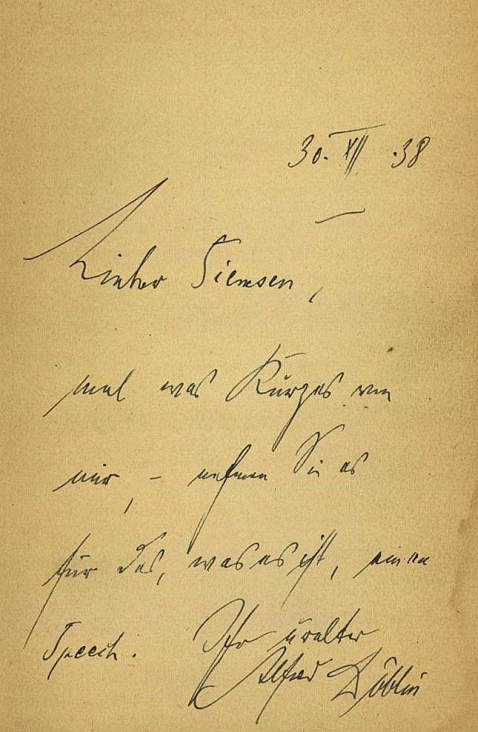 30. XII .38
Lieber Siemsen,
mal was Kurzes von
mir, – nehmen Sie es
für das, was es ist, einen
Speech. Ihr uralter
Alfred Döblin